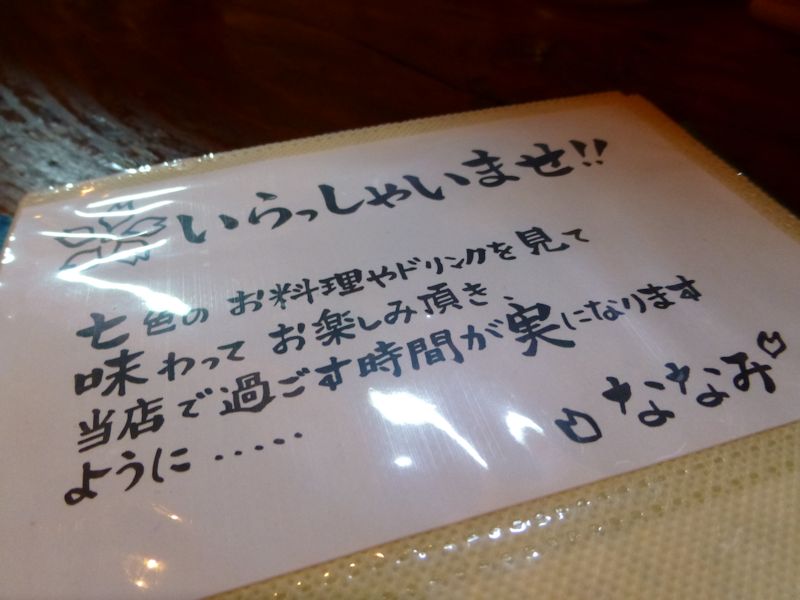 いらっしゃいませ!!
七色のお料理やドリンクを見て
味わってお楽しみ頂き、
当店で過ごす時間が実になります
ように・・・・・
ななみ